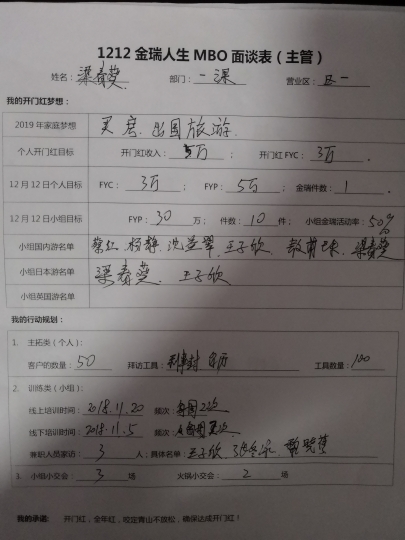 1212金瑞人生MBO面谈表（主管）
姓名：梁春葵 部门：一课 营业区：区一
我的开门红梦想：
2019年家庭梦想 买房、出国旅游.
个人开门红目标 开门红收入：5万； 开门红FYC：3万.
12月12日个人目标 FYC：3万； FYP：5万； 金瑞件数：1
12月12日小组目标 FYP：30万； 件数：10件； 小组金瑞活动率：50%
小组国内游名单 杨静、王子欣、梁春葵
小组日本游名单 梁春葵、王子欣
小组英国游名单
我的行动规划：
1. 主拓类（个人）：
客户的数量：50 拜访工具： 台历 工具数量：100
2. 训练类（小组）：
线上培训时间：2018.11.20 频次：每周2次
线下培训时间：2018.11.5 频次：
兼职人员家访：3人；具体名单：王子欣、
3. 小组小交会：3场 火锅小交会：2场
我的承诺： 开门红，全年红，咬定青山不放松，确保达成开门红！